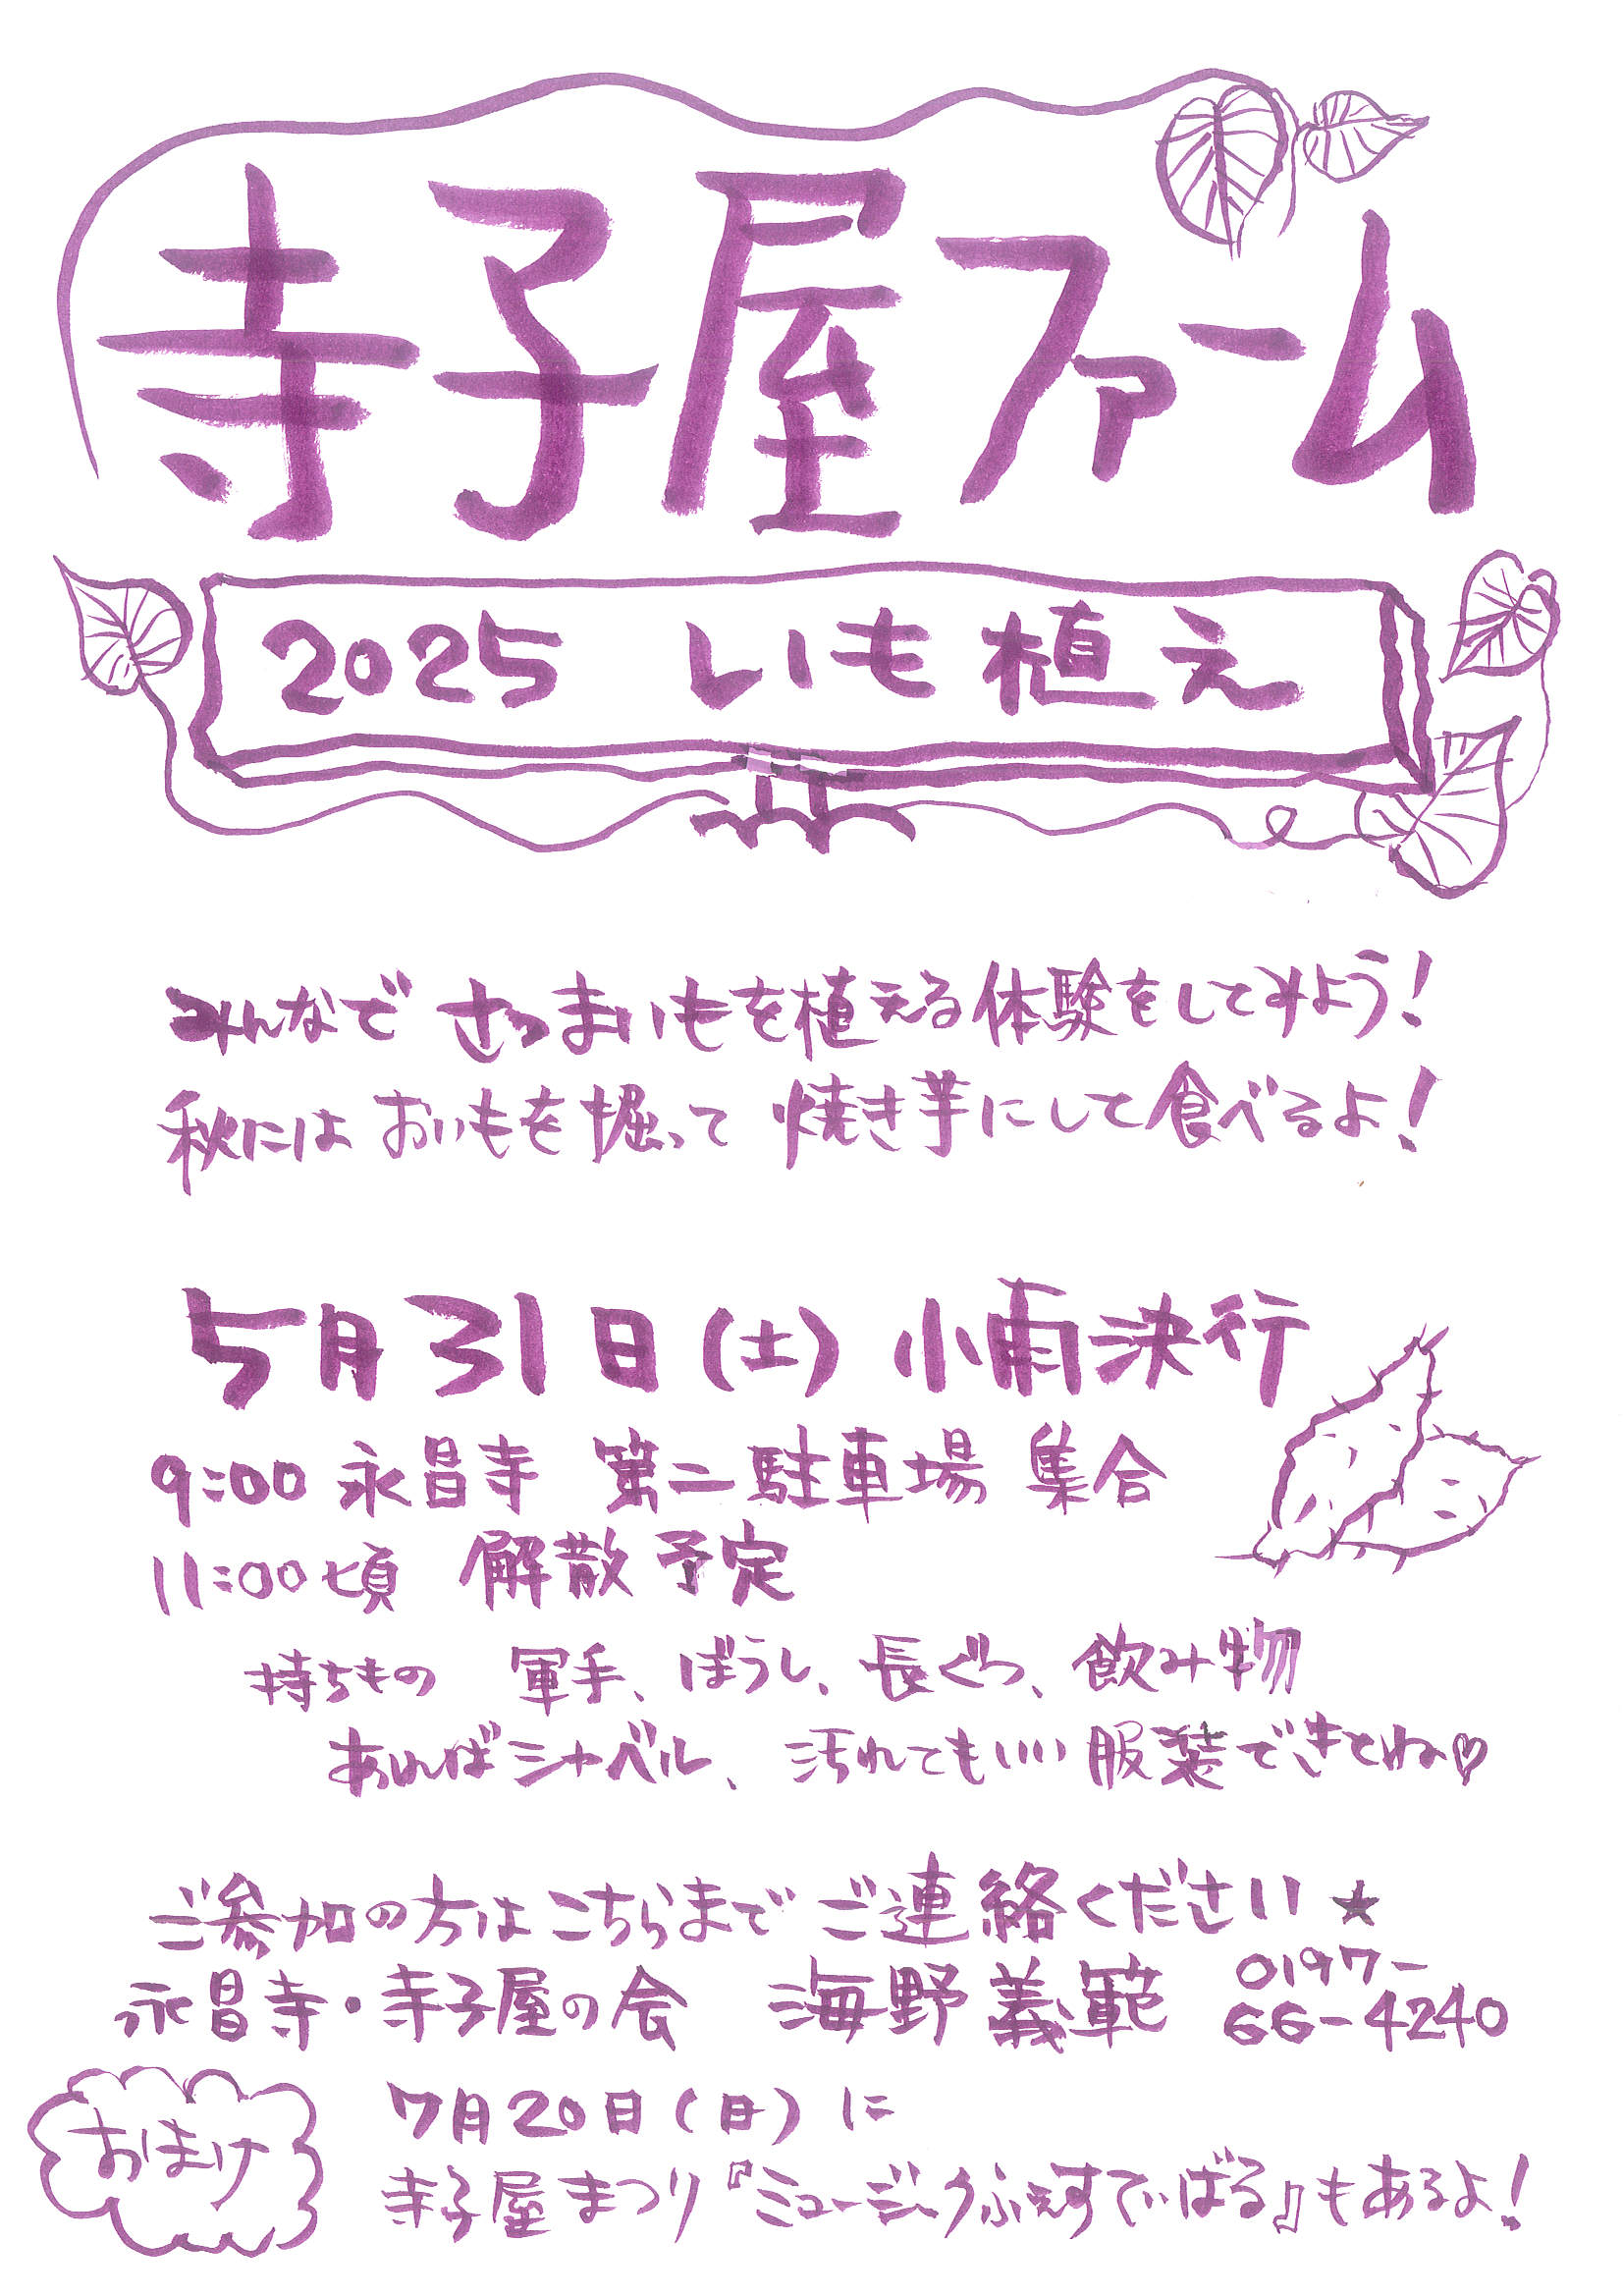 寺子屋ファーム
2025 いも植え
みんなで さつまいもを植える体験をしてみよう!
秋には おいもを掘って 焼き芋にして食べるよ!
5月31日(土) 小雨決行
9:00 永昌寺 第二駐車場 集合
11:00頃 解散予定
持ちもの 軍手、ぼうし、長ぐつ、飲み物
あればシャベル、汚れてもいい服装できてね♡
ご参加の方は こちらまで ご連絡ください★
永昌寺・寺子屋の会 海野義範 0197-
66-4240
おまけ
7月20日(日)に
寺子屋まつり『ミュージックふぇすてぃばる』もあるよ!